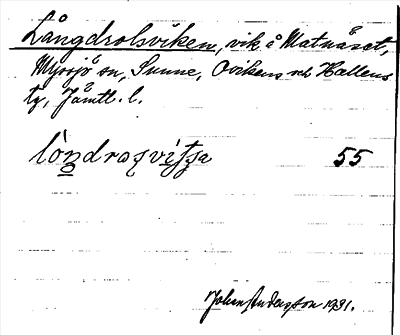 Långdrolsviken, vik å Matnäset,
Myssjö sn, Sunne, Ovikens och Hallens
tg, Jämtl. l.
lòn̥droʂvit̡s̡a 55
Johan Anderson 1931.